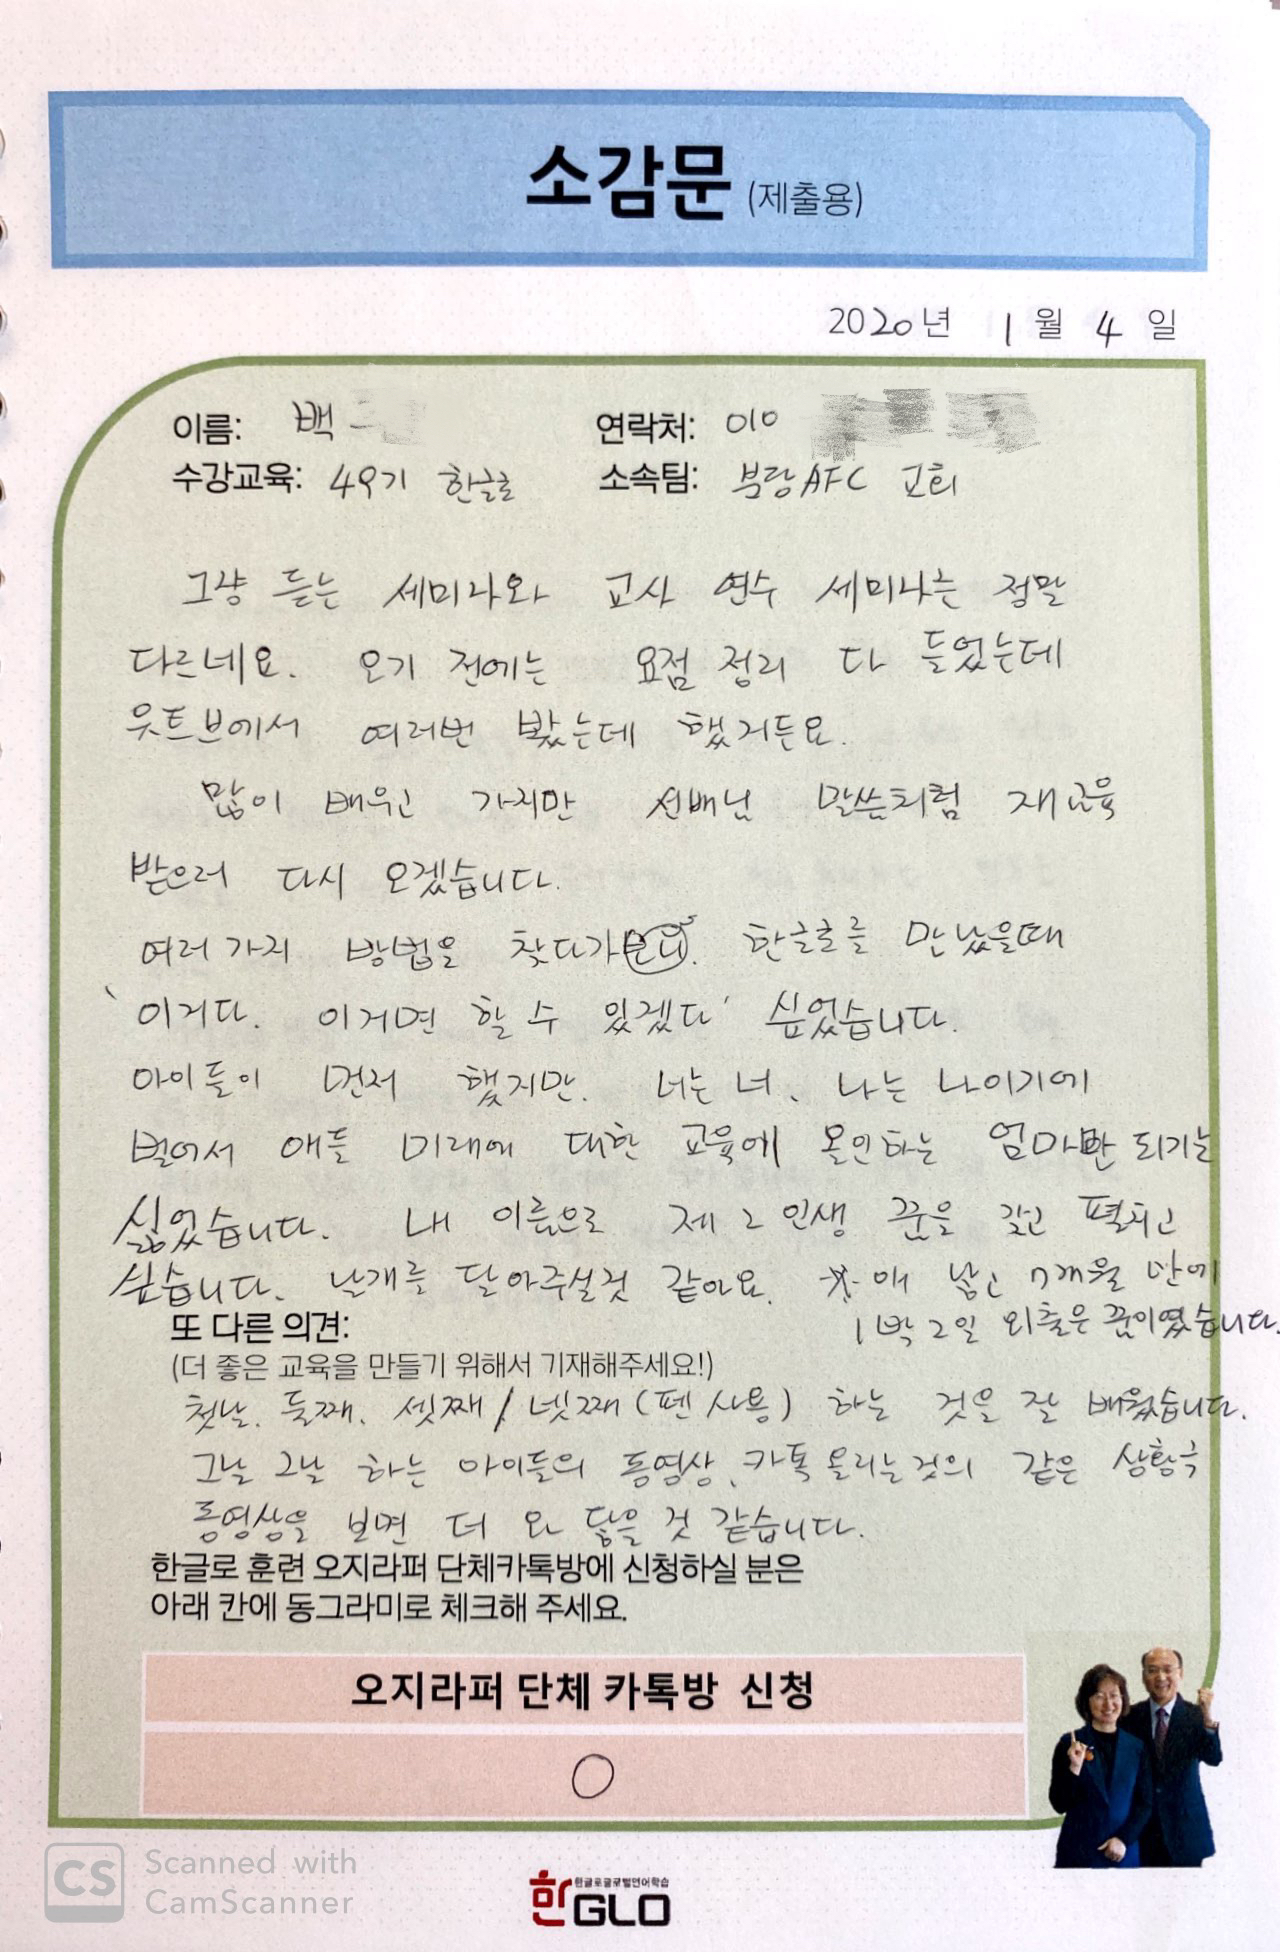 소감문 (제출용)
2020년 1월 4일
이름: 백
연락처: 010
수강교육: 49기 한글로
소속팀: 부랑AFC 교회
그냥 듣는 세미나와 교사 연수 세미나는 정말
다르네요. 오기 전에는 요점 정리 다 들었는데
유트브에서 여러번 봤는데 했거든요.
많이 배우고 가지만 선배님 말씀처럼 재교육
받으러 다시 오겠습니다.
여러가지 방법을 찾다가보니. 한글로를 만났을때
'이거다. 이거면 할 수 있겠다' 싶었습니다.
아이들이 먼저 했지만. 너는 너, 나는 나이기에
벌어서 애들 미래에 대한 교육에 올인하는 엄마만 되기는
싫었습니다. 내 이름으로 제 2 인생 꿈을 갖고 펼치고
싶습니다. 날개를 달아주실것 같아요. 애 낳고 7개월 만에
1박 2일 외출은 꿈이였습니다.
또 다른 의견:
(더 좋은 교육을 만들기 위해서 기재해주세요!)
첫날. 둘째. 셋째 / 넷째 (펜 사용) 하는 것을 잘 배웠습니다.
그날 그날 하는 아이들의 동영상, 카톡 올리는것의 같은 상황극
동영상을 보면 더 와 닿을 것 같습니다.
한글로 훈련 오지라퍼 단체카톡방에 신청하실 분은
아래 칸에 동그라미로 체크해 주세요.
오지라퍼 단체 카톡방 신청
○
CS Scanned with
CamScanner
한글로글로벌언어학습
한GLO